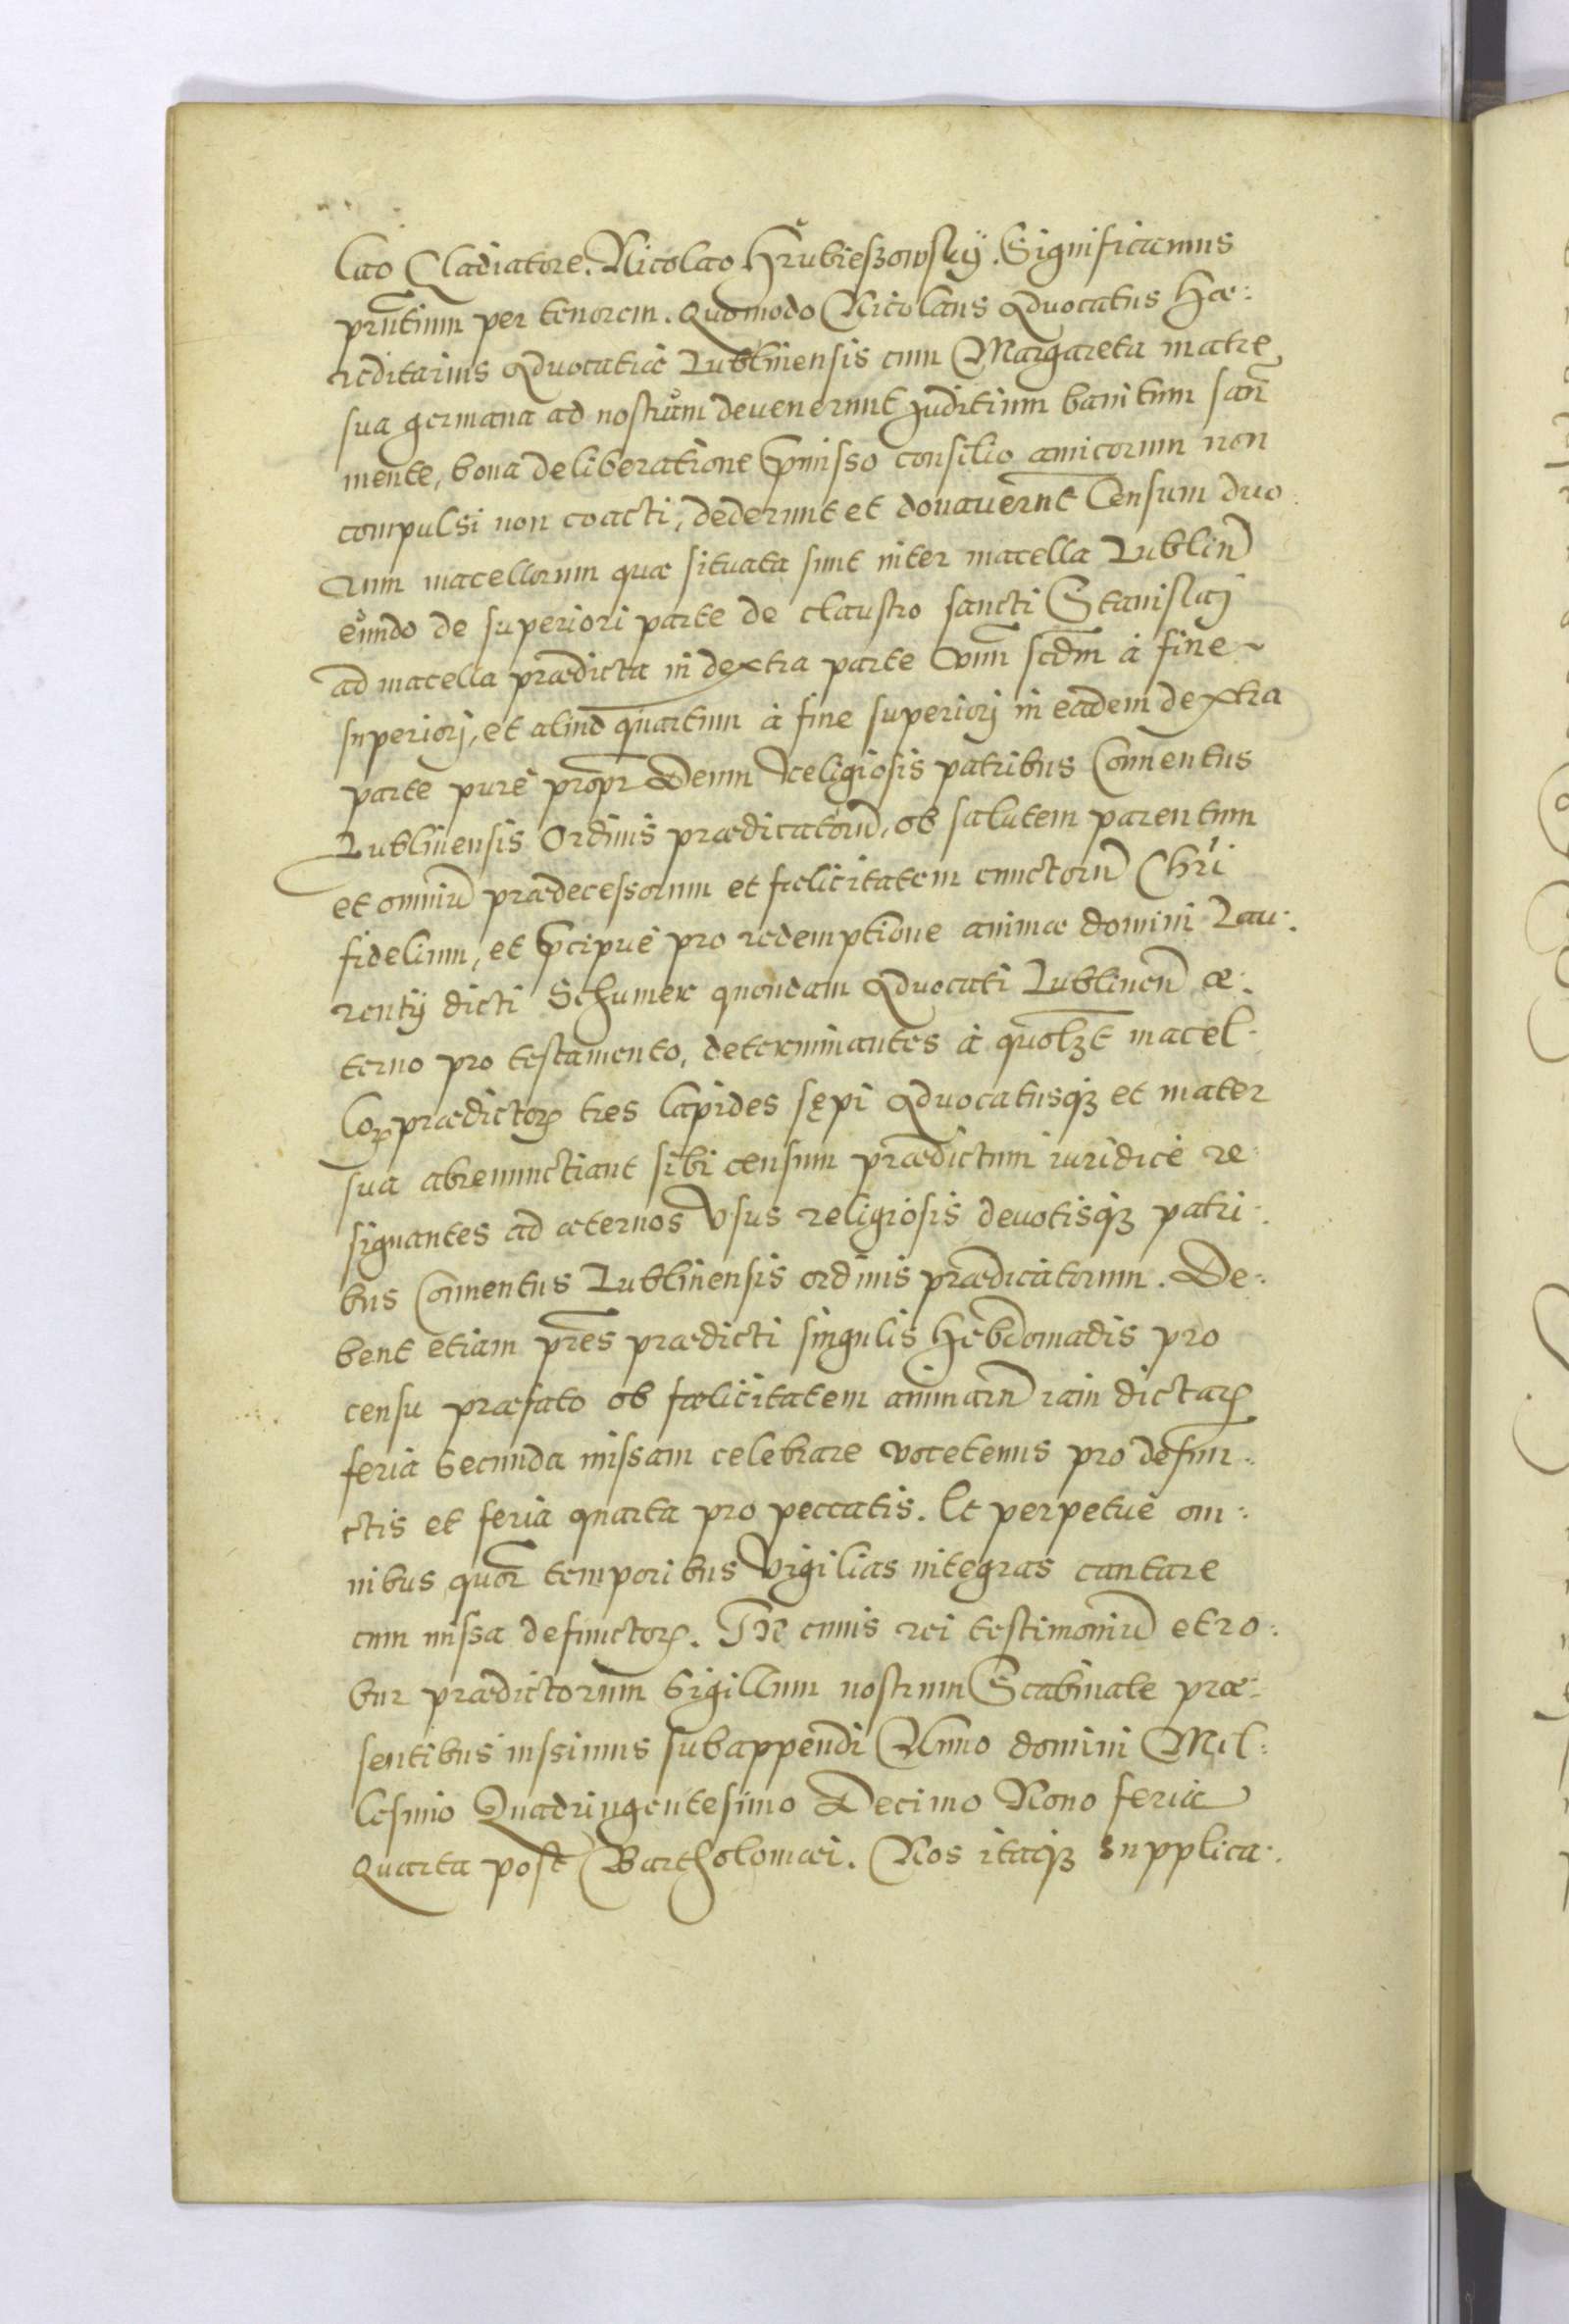 lao Gladiatore. Nicolao Hrubieszowskÿ. Significamus
prñtium per tenorem. Quomodo Nicolaus Aduocatus Hæ:
reditarius Aduocatiæ Lublinensis cum Margareta matre
sua germana ad nostrům deuenerunt Juditium banitum san̄
mente, bona deliberatione p̄misso consilio amicorum non
compulsi non coacti, dederunt et donauer̄nt Censum duo
rum macellorum quæ situata sunt inter macella Lublin̄
eundo de superiori parte de claustro sancti Stanislaj
ad macella prædicta in dextra parte vnū scđm à fine
superiorj, et aliud quartum à fine superiorj in eadem dextra
parte purè propr̄ Deum Religiosis patribus Conuentus
Lublinensis Ordinis prædicatorū, ob salutem parentum
et omniū prædecessorum et fælicitatem cunctorū Chr̄i
fidelium, et p̄cipuè pro redemptione animæ domini Lau:
rentÿ dicti Schumer quondam Aduocati Lublinen̄ æ:
terno pro testamento, determinantes à quolȝt macel
loꝝ prædictoꝝ tres lapides sępi Aduocatusqȝ et mater
sua abrenunctiant sibi censum prædictum iuridicè re
signantes ad æternos vsus religiosis deuotisqȝ patri:
bus Conuentus Lublinensis ordinis prædicatorum. De:
bent etiam pr̄es prædicti singulis Hebdomadis pro
censu præfato ob fælicitatem animarū iam dictaꝝ
feria Secunda missam celebrare vocetenus pro defun:
ctis et feria quarta pro peccatis. Et perpetuè om:
nibus quor̄ temporibus vigilias integras cantare
cum missa defunctoꝝ. In cuius rei testimoniū et ro:
bur prædictorum Sigillum nostrum Scabinale præ:
sentibus iussimus subappendi Anno domini Mil:
lesimo Quadringentesimo Decimo Nono feria
quarta post Bartholomæi. Nos itaqȝ supplica: